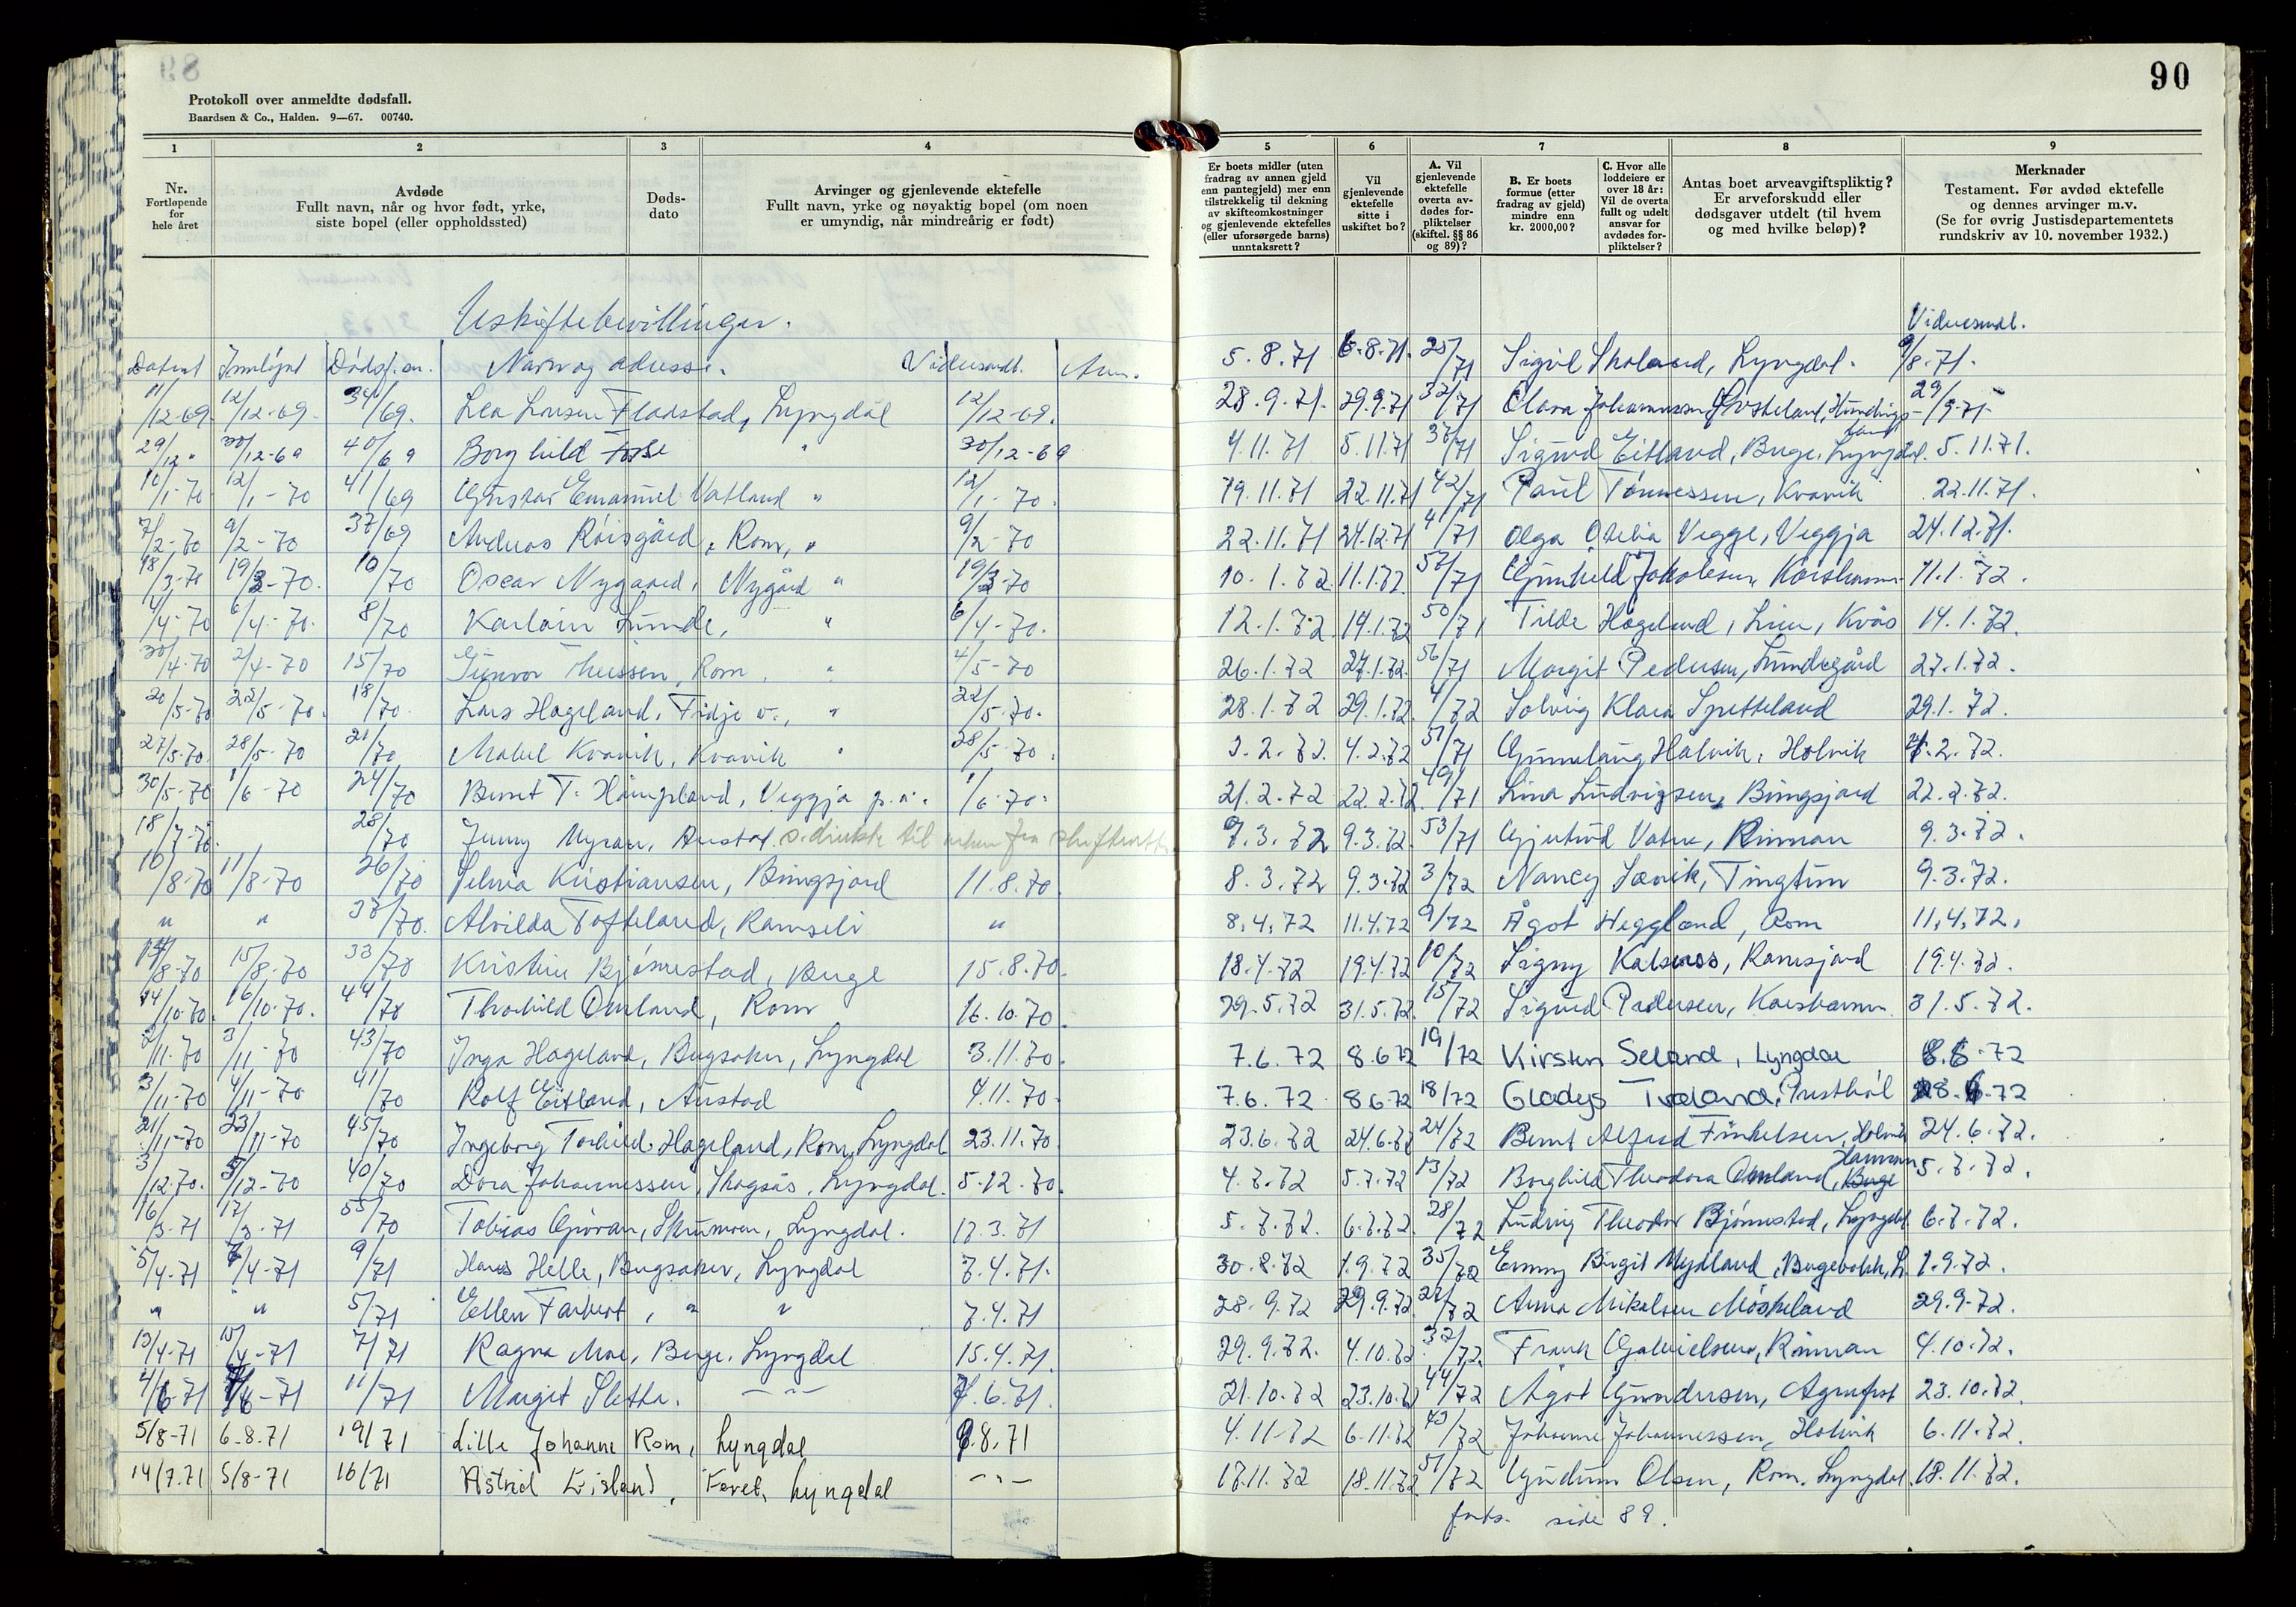 89
Protokoll over anmeldte dødsfall.
Baardsen & Co., Halden. 9—67. 00740.
1 2 3 4
Nr. Fortløpende for hele året
Avdøde Fullt navn, når og hvor født, yrke, siste bopel (eller oppholdssted)
Dødsdato
Arvinger og gjenlevende ektefelle Fullt navn, yrke og nøyaktig bopel (om noen er umyndig, når mindreårig er født)
Uskiftebevillinger.
Datert Innløpt Dødsf.nr. Navn og adresse. Videresendt. Anm.
11/12-69. 12/12-69. 34/69. Lea Larsen Fladstad, Lyngdal 12/12-69.
29/12 " 30/12-69 40/69 Borghild " 30/12-69
10/1-70 12/1-70 41/69 Gustav Emanuel Vatland " 12/1-70.
7/2-70 9/2-70 37/69 Andreas Røisgård, Rom, " 9/2-70
18/3-70 19/3-70. 10/70 Oscar Nygaard, Nygård " 19/3-70
4/4-70 6/4-70. 8/70 Karl Lunde, " 6/4-70.
30/4-70 2/4-70 15/70 Gunvor Theissen, Rom, " 4/5-70
20/5-70 22/5-70. 18/70. Lars Hageland, Fidje v., " 22/5-70.
27/5-70. 28/5-70 21/70 Mabel Kvavik, Kvavik " 28/5-70.
30/5-70 1/6-70 24/70 Bernt T. Haugland, Veggja p.å. 1/6-70.
18/7-70. 28/70 Jenny Myran, Austad s. direkte til fra skifteretten
10/8-70 11/8-70 26/70 Selma Kristiansen, Bringsjord 11.8.70.
" " 38/70. Alvilda Tofteland, Ramseli "
14/8-70 15/8-70 33/70 Kristine Bjørnestad, Berge 15.8.70.
14/10-70. 16/10-70. 44/70 Thorhild Omland, Rom 16.10.70.
2/11-70 3/11-70 43/70 Inga Hageland, Bergsaker, Lyngdal 3.11.70.
3/11-70 4/11-70 41/70 Rolf Eitland, Austad 4.11.70.
21/11-70 23/11-70 45/70 Ingeborg Torhild Hageland, Rom, Lyngdal 23.11.70.
3/12-70. 5/12-70 40/70 Dora Johannessen, Skogsås, Lyngdal. 5.12.70.
16/3-71 17/3-71 55/70 Tobias Gjervan, Skumran, Lyngdal. 17.3.71
5/4-71 7/4-71 9/71 Hans Helle, Bergsaker, Lyngdal 7.4.71.
" " 5/71 Ellen Farbrot, " " 7.4.71
13/4-71 15/4-71 7/71 Ragna Moe, Berge, Lyngdal 15.4.71.
4/6-71 7/6-71 11/71 Margit Sletta. — " — 7.6.71.
5/8-71 6-8.71 19/71 Lille Johanne Rom, Lyngdal 9.8.71
14/7.71 5/8-71 16/71 Astrid Eisland, Faret, Lyngdal — " —
90
5 6 7 8 9
Er boets midler (uten fradrag av annen gjeld enn pantegjeld) mer enn tilstrekkelig til dekning av skifteomkostninger og gjenlevende ektefelles (eller uforsørgede barns) unntaksrett?
Vil gjenlevende ektefelle sitte i uskiftet bo?
A. Vil gjenlevende ektefelle overta avdødes forpliktelser (skiftel. §§ 86 og 89)?
B. Er boets formue (etter fradrag av gjeld) mindre enn kr. 2000,00?
C. Hvor alle loddeiere er over 18 år: Vil de overta fullt og udelt ansvar for avdødes forpliktelser?
Antas boet arveavgiftspliktig? Er arveforskudd eller dødsgaver utdelt (til hvem og med hvilke beløp)?
Merknader Testament. Før avdød ektefelle og dennes arvinger m.v. (Se for øvrig Justisdepartementets rundskriv av 10. november 1932.)
Videresendt.
5.8.71 6.8.71. 25/71 Sigvil Skoland, Lyngdal. 9/8-71.
28.9.71. 29.9.71 32/71 Clara Johannessen 29/9-71
4.11.71 5.11.71 37/71 Sigurd Eitland, Berge, Lyngdal. 5.11.71.
19.11.71 22.11.71 42/71 Paul Tønnessen, Kvavik 22.11.71.
22.11.71 24.12.71 41/71 Olga Otelia Vegge, Veggja 24.12.71.
10.1.72 11.1.72. 57/71 Gunhild Jakobsen, Korshamn 11.1.72.
12.1.72 14.1.72 50/71 Tilde Hageland, Lien, Kvås 14.1.72.
26.1.72 27.1.72. 56/71 Margit Pedersen, Lundegård 27.1.72.
28.1.72 29.1.72. 4/72 Solveig Klara Spetteland 29.1.72.
3.2.72. 4.2.72 51/71 Gunnlaug Hølvik, Holvik 4.2.72.
21.2.72 22.2.72. 49/71 Lina Ludvigsen, Bringsjord 22.2.72.
7.3.72 9.3.72. 53/71 Gjertrud Vatne, Rinnan 9.3.72.
8.3.72 9.3.72 3/72 Nancy Løvik, Tingtun 9.3.72.
8.4.72 11.4.72 9/72 Ågot Heggland, Rom 11.4.72.
18.4.72 19.4.72 10/72 Signy Kalsnes, Ramsjord 19.4.72.
29.5.72 31.5.72. 15/72 Sigurd Pedersen, Korshamn 31.5.72.
7.6.72 8.6.72 19/72 Kirsten Seland, Lyngdal 8.6.72
7.6.72 8.6.72 18/72 Gladys Tveland, Prestbøl 8.6.72
23.6.72 24.6.72 24/72 Bernt Alfred Finkelsen, Holvik 24.6.72.
4.7.72 5.7.72 13/72 Borghild Theodora Omland, Berge 5.7.72.
5.7.72. 6.7.72. 28/72 Ludvig Theodor Bjørnestad, Lyngdal 6.7.72.
30.8.72 1.9.72 35/72 Emmy Birgit Mydland, Bergebakk, L. 1.9.72.
28.9.72 29.9.72. 27/72 Anna Mikalsen Møskeland 29.9.72.
29.9.72. 4.10.72 32/72. Frank Gabrielsen, Rinnan 4.10.72.
21.10.72 23.10.72 44/72 Ågot Gundersen, Agnefest 23.10.72.
4.11.72 6.11.72 43/72 Johanne Johannessen, Holvik 6.11.72.
17.11.72 18.11.72. 51/72 Gudrun Olsen, Rom, Lyngdal. 18.11.72.
forts. side 89.